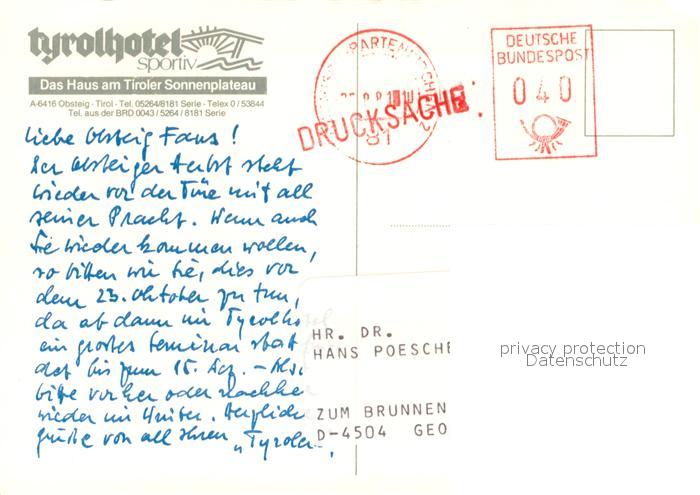 tyrolhotel
sportiv
Das Haus am Tiroler Sonnenplateau
A-6416 Obsteig · Tirol - Tel. 05264/8181 Serie - Telex 0 / 53844
Tel. aus der BRD 0043 / 5264 / 8181 Serie
DEUTSCHE
BUNDESPOST
040
DRUCKSACHE
Liebe Obsteig Fans!
Der Obsteiger Herbst steht
wieder vor der Türe mit all
seiner Pracht. Wenn auch
Sie wieder kommen wollen,
so bitten wir Sie, dies vor
dem 23. Oktober zu tun,
da ab dann im Tyrolho
ein großes Seminar statt
bis zum 15. Dez. - Also
bitte vorher oder nachher
wieder im Winter. Herzliche
Grüße von all Ihren „Tyroler
HR. DR.
HANS POESCHE
ZUM BRUNNEN
D-4504 GEO
privacy protection
Datenschutz